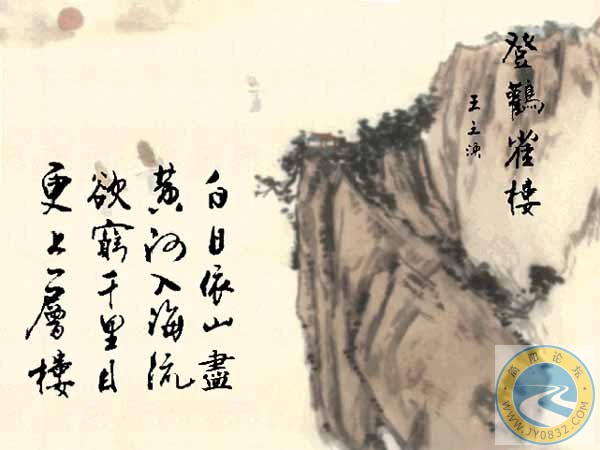 登鸛雀樓
王之渙
白日依山盡
黄河入海流
欲窮千里目
更上一層樓
简阳论坛
WWW.JY0832.COM